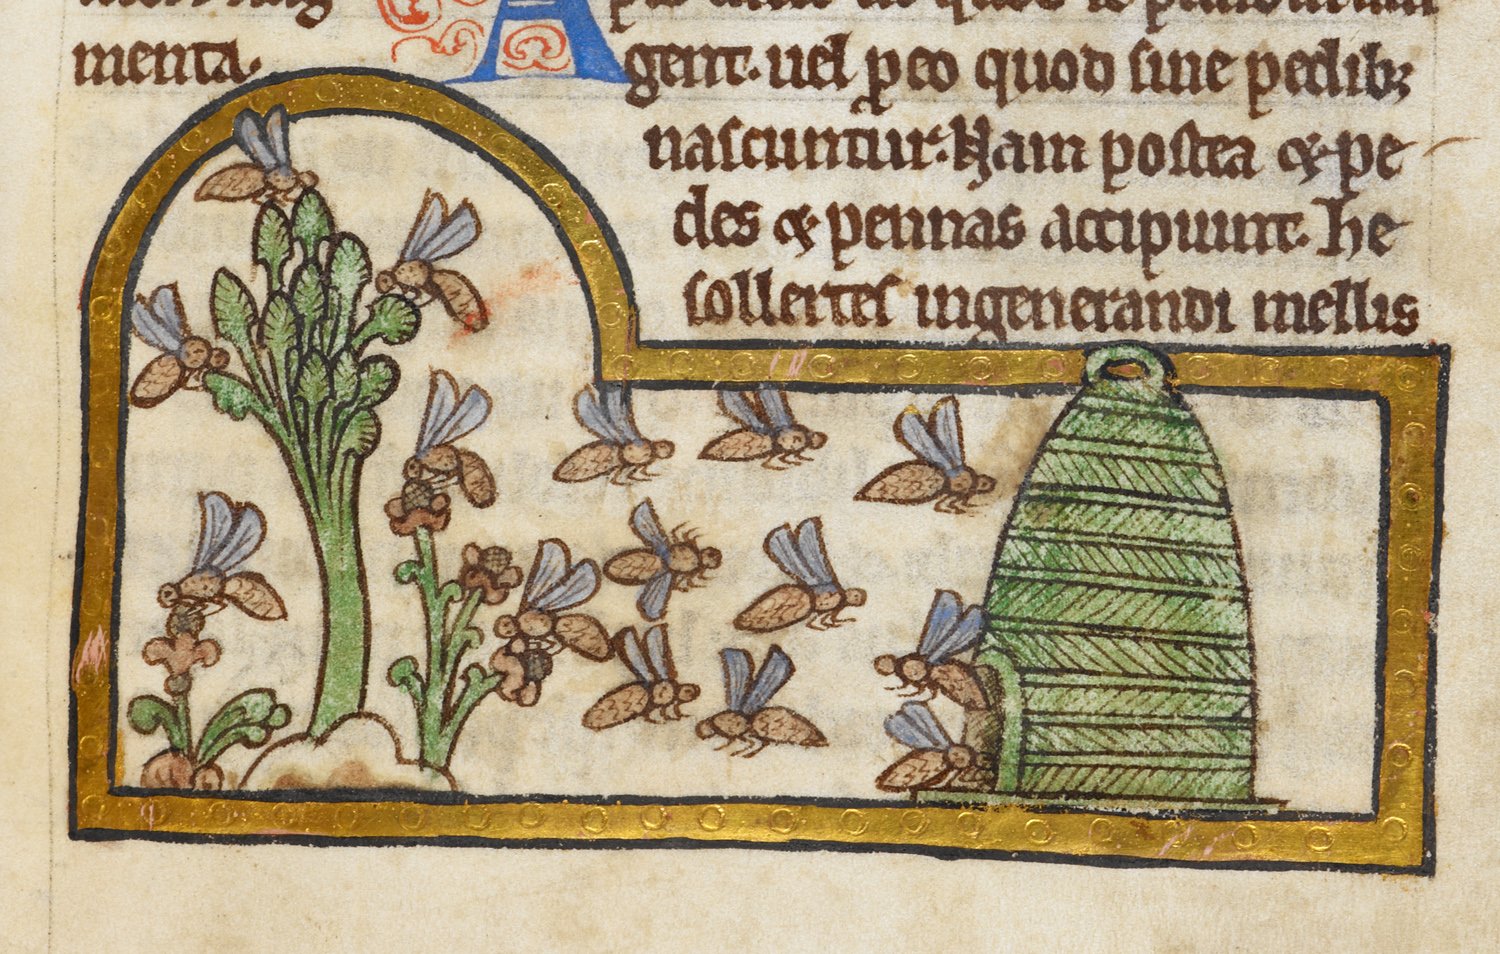 menta. A gent. uel p eo quod sine pedib;
nascuntur. Nam postea & pe
des & pennas accipiunt. he
sollertes ingenerandi mellis